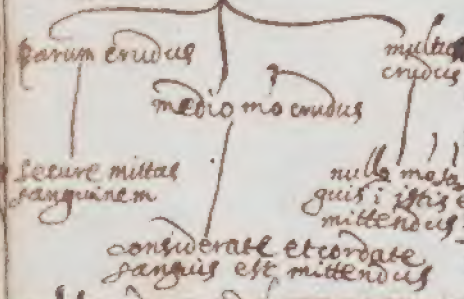 parum crudus
medio mo crudus
multum
crudus
secure mittas
sanguinem
nullo mo san
guis i istis e
mittendus
considerate et cordate
sanguis est mittendus